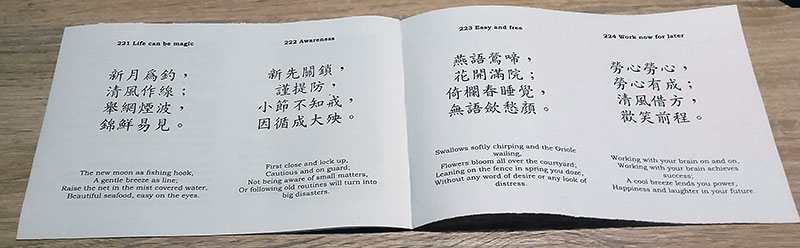 221 Life can be magic
新月爲釣，
清風作線；
舉網煙波，
錦鮮易見。
The new moon as fishing hook,
A gentle breeze as line;
Raise the net in the mist covered water,
Beautiful seafood, easy on the eyes.
222 Awareness
新先關鎖，
謹提防，
小節不知戒，
因循成大殃。
First close and lock up,
Cautious and on guard;
Not being aware of small matters,
Or following old routines will turn into
big disasters.
223 Easy and free
燕語鶯啼，
花開滿院；
倚欄春睡覺，
無語斂愁顏。
Swallows softly chirping and the Oriole
wailing,
Flowers bloom all over the courtyard;
Leaning on the fence in spring you doze,
Without any word of desire or any look of
distress.
224 Work now for later
勞心勞心，
勞心有成；
清風借方，
歡笑前程。
Working with your brain on and on,
Working with your brain achieves
success;
A cool breeze lends you power,
Happiness and laughter in your future.